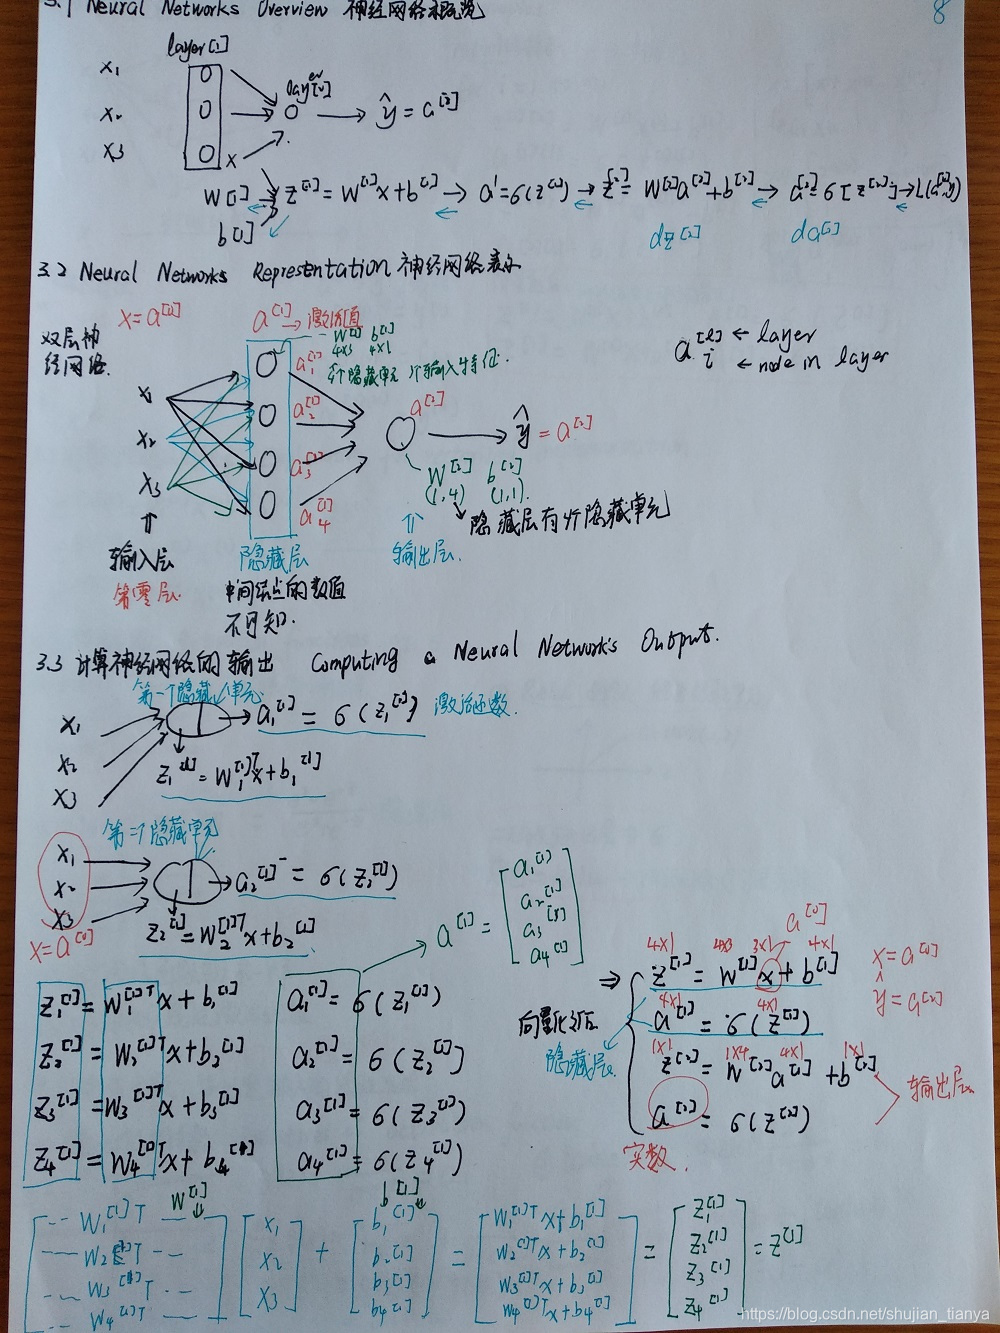 3.1 Neural Networks Overview 神经网络概览
8
layer[1]
x1
x2
x3
layer[2]
ŷ = a[2]
x
W[1]
b[1]
z[1] = W[1]x + b[1] → a[1] = σ(z[1]) → z[2] = W[2]a[1] + b[2] → a[2] = σ[z[2]] → L(a[2], y)
dz[2]
da[2]
3.2 Neural Networks Representation 神经网络表示
x = a[0]
a[1] → 激活值
W[1] b[1]
4x3 4x1
4个隐藏单元 3个输入特征.
双层神
经网络.
a[l] ← layer
i ← node in layer
x1
x2
x3
a1[1]
a2[1]
a3[1]
a4[1]
a[2]
ŷ = a[2]
W[2] b[2]
(1,4) (1,1).
隐藏层有4个隐藏单元
输入层
第零层.
隐藏层
中间结点的数值
不可知.
输出层.
3.3 计算神经网络的输出 Computing a Neural Network's Output.
第一个隐藏单元
x1
x2
x3
a1[1] = σ(z1[1]) 激活函数.
z1[1] = W1[1]T x + b1[1]
第二个隐藏单元
x1
x2
x3
x = a[0]
a2[1] = σ(z2[1])
z2[1] = W2[1]T x + b2[1]
a[1] =
a1[1]
a2[1]
a3[1]
a4[1]
z1[1] = W1[1]T x + b1[1]
z2[1] = W2[1]T x + b2[1]
z3[1] = W3[1]T x + b3[1]
z4[1] = W4[1]T x + b4[1]
a1[1] = σ(z1[1])
a2[1] = σ(z2[1])
a3[1] = σ(z3[1])
a4[1] = σ(z4[1])
⇒
向量化后
隐藏层
a[0]
4x1 4x3 3x1 4x1
z[1] = W[1] x + b[1]
4x1 4x1
a[1] = σ(z[1])
1x1 1x4 4x1 1x1
z[2] = W[2] a[1] + b[2]
a[2] = σ(z[2])
实数.
x = a[0]
ŷ = a[2]
输出层
W[1]
b[1]
-- W1[1]T --
-- W2[1]T --
-- W3[1]T --
-- W4[1]T --
x1
x2
x3
+
b1[1]
b2[1]
b3[1]
b4[1]
=
W1[1]T x + b1[1]
W2[1]T x + b2[1]
W3[1]T x + b3[1]
W4[1]T x + b4[1]
=
z1[1]
z2[1]
z3[1]
z4[1]
= z[1]
https://blog.csdn.net/shujian_tianya